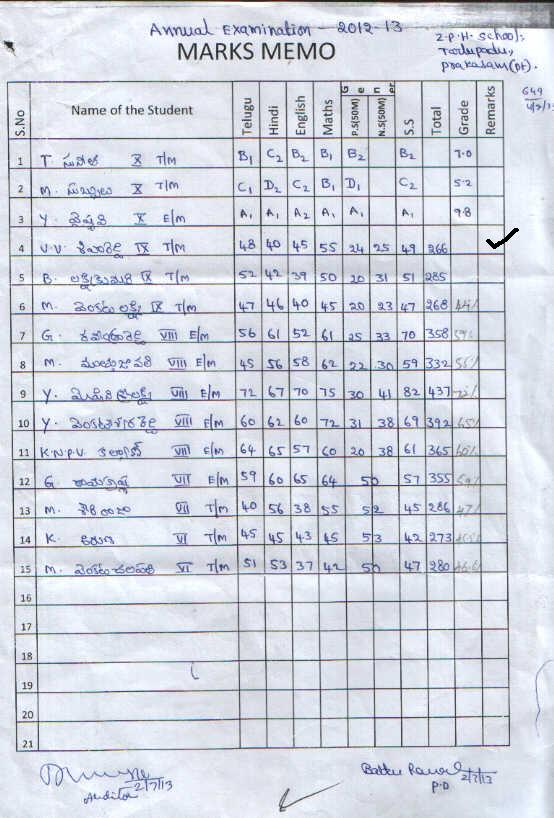 Annual Examination - 2012-13
MARKS MEMO
Z.P.H. School,
Tadupadu,
prakasam(Dt).
649
S.No Name of the Student Telugu Hindi English Maths General P.S(50M) N.S(50M) S.S Total Grade Remarks
1 T. సునీత X T/M B1 C2 B2 B1 B2 B2 7.0
2 M. సుబ్బులు X T/M C1 D2 C2 B1 D1 C2 5.2
3 Y. వైష్ణవి X E/M A1 A1 A2 A1 A1 A1 9.8
4 V.V. శివారెడ్డి IX T/M 48 40 45 55 24 25 49 266
5 B. లక్ష్మీకుమారి IX T/M 52 42 39 50 20 31 51 285
6 M. వెంకటలక్ష్మి IX T/M 47 46 40 45 20 23 47 268
7 G. VIII E/M 56 61 52 61 25 33 70 358
8 M. VIII E/M 45 56 58 62 22 30 59 332
9 Y. VIII E/M 72 67 70 75 30 41 82 437
10 Y. వెంకటేశ్వరరెడ్డి VIII E/M 60 62 60 72 31 38 69 392
11 K.N.P.V. కళ్యాణ్ VIII E/M 64 65 57 60 20 38 61 365
12 G. రామకృష్ణ VII E/M 59 60 65 64 50 57 355
13 M. VII T/M 40 56 38 55 52 45 286
14 K. కిరణ్ VI T/M 45 45 43 45 53 42 273
15 M. వెంకటాచలపతి VI T/M 51 53 37 42 50 47 280
16
17
18
19
20
21
Auditor 2/7/13
2/7/13
P.D